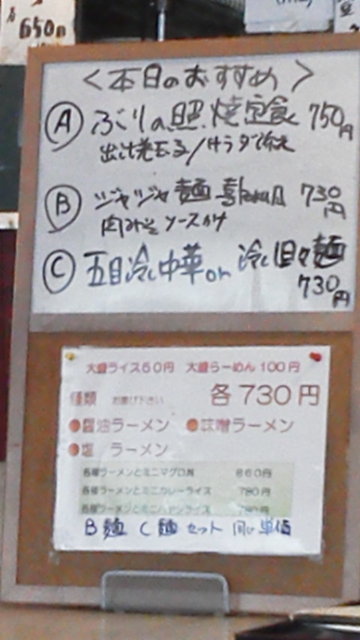 650円
<本日のおすすめ>
Ⓐ ぶりの照焼定食 750円
出し巻玉子/サラダ添え
Ⓑ ジャジャ麺 730円
肉みそソースかけ
Ⓒ 五目冷し中華or冷し担々麺
730円
大盛ライス50円 大盛らーめん100円
種類 お選び下さい 各730円
●醤油ラーメン ●味噌ラーメン
●塩 ラーメン
各種ラーメンとミニマグロ丼 860円
各種ラーメンとミニカレーライス 780円
各種ラーメンとミニハヤシライス 780円
B麺 C麺 セット 同じ単価